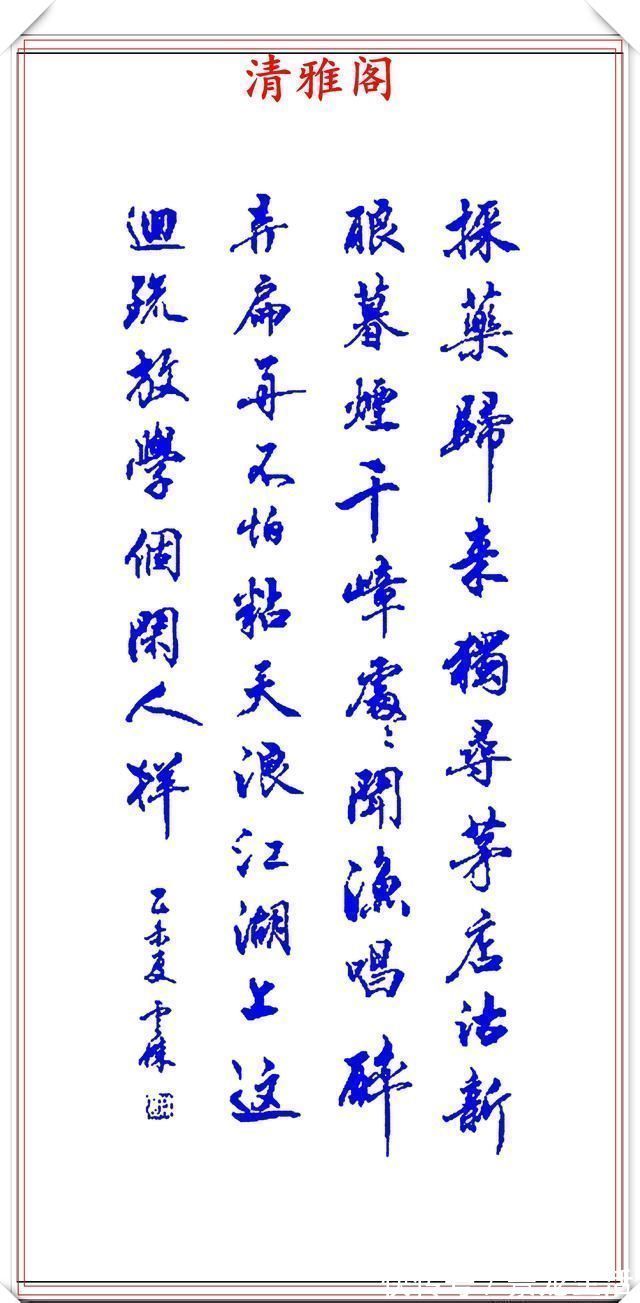 清雅阁
採藥歸来獨尋茅店沽新
酿暮煙千嶂處々聞漁唱醉
弄扁舟不怕粘天浪江湖上這
迴疏放學個閑人样
乙未夏